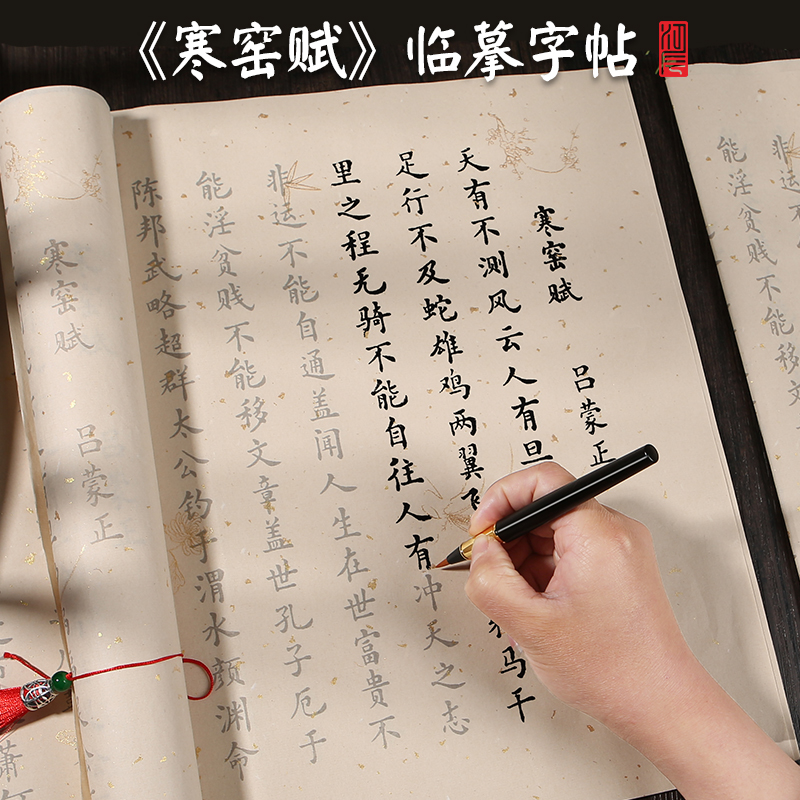 《寒窑赋》临摹字帖
寒窑赋
吕蒙正
天有不测风云人有旦
足行不及蛇雄鸡两翼飞 马千
里之程无骑不能自往人有冲天之志
非运不能自通盖闻人生在世富贵不
能淫贫贱不能移文章盖世孔子厄于
陈邦武略超群太公钓于渭水颜渊命
寒窑赋
吕蒙正
非运不
能淫贫贱不能移文